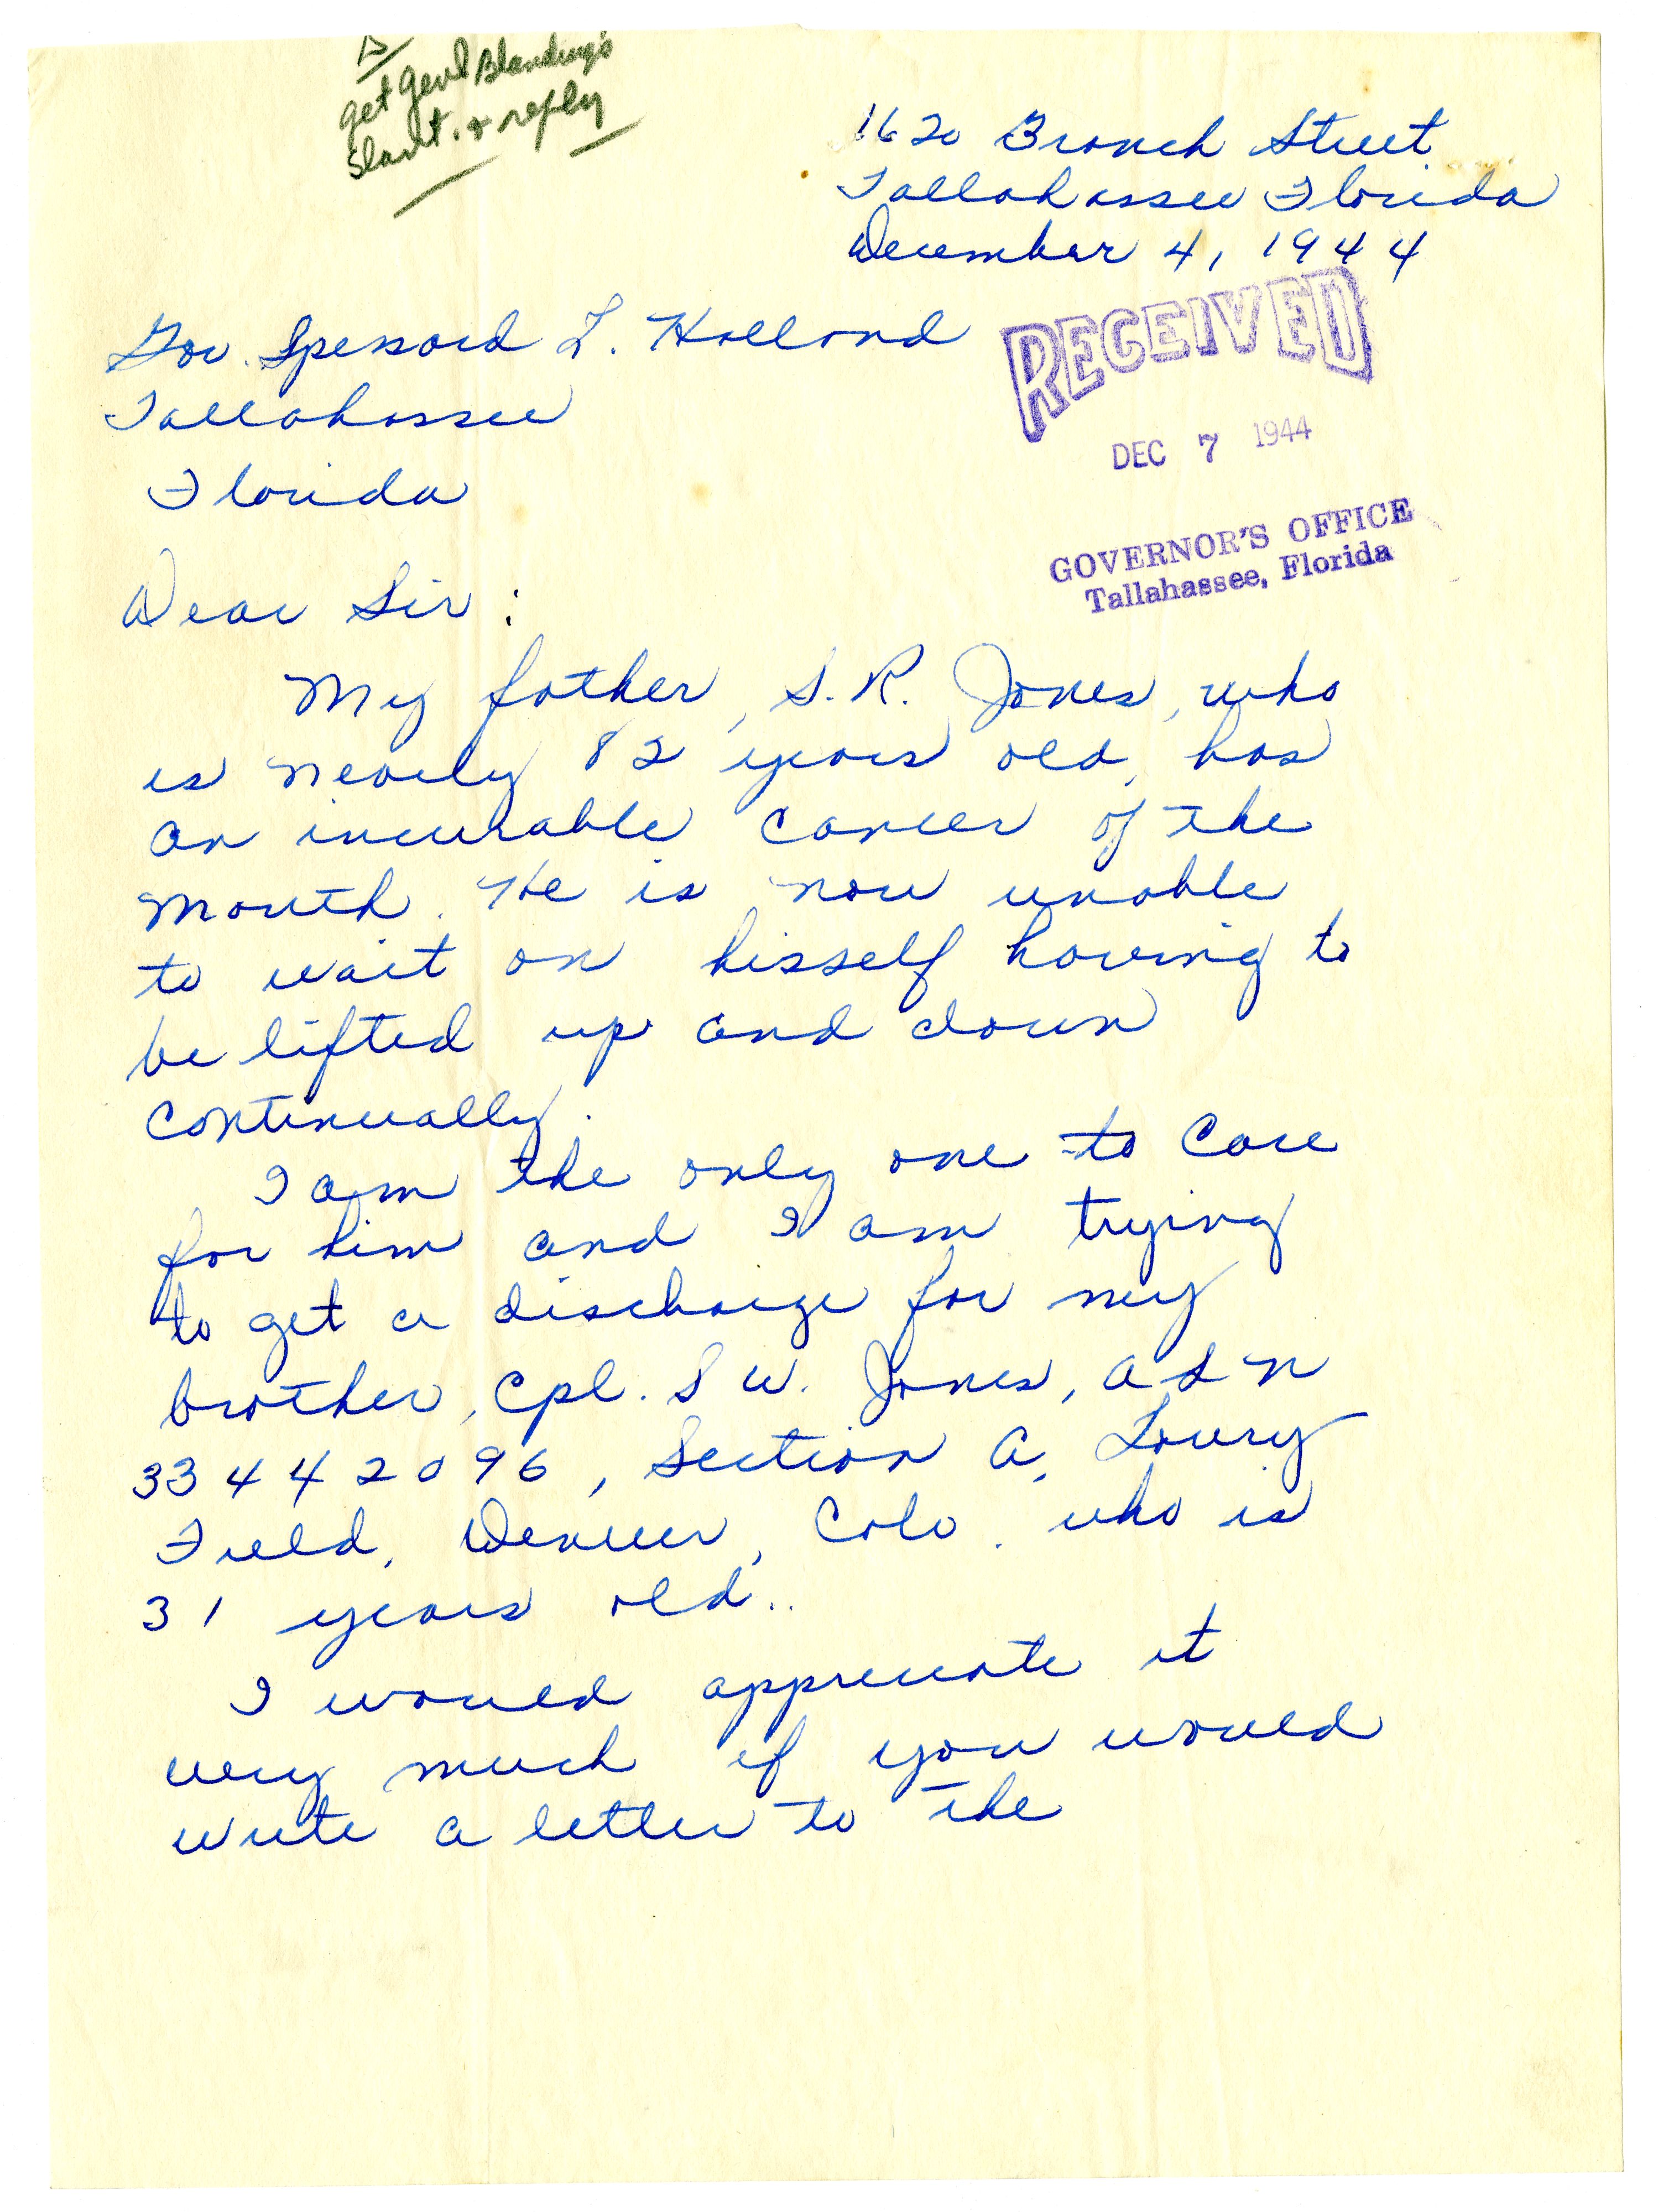 get Genl Blanding's
slant. & reply
1620 Branch Street
Tallahassee Florida
December 4, 1944
Gov. Spessard L. Holland
Tallahassee
Florida
RECEIVED
DEC 7 1944
GOVERNOR'S OFFICE
Tallahassee, Florida
Dear Sir:
My father, S. R. Jones, who
is nearly 82 years old, has
an incurable cancer of the
mouth. He is now unable
to wait on hisself having to
be lifted up and down
continually.
I am the only one to care
for him and I am trying
to get a discharge for my
brother, Cpl. S W. Jones, A S N
33442096, Section A, Lowry
Field, Denver, Colo. who is
31 years old..
I would appreciate it
very much if you would
write a letter to the